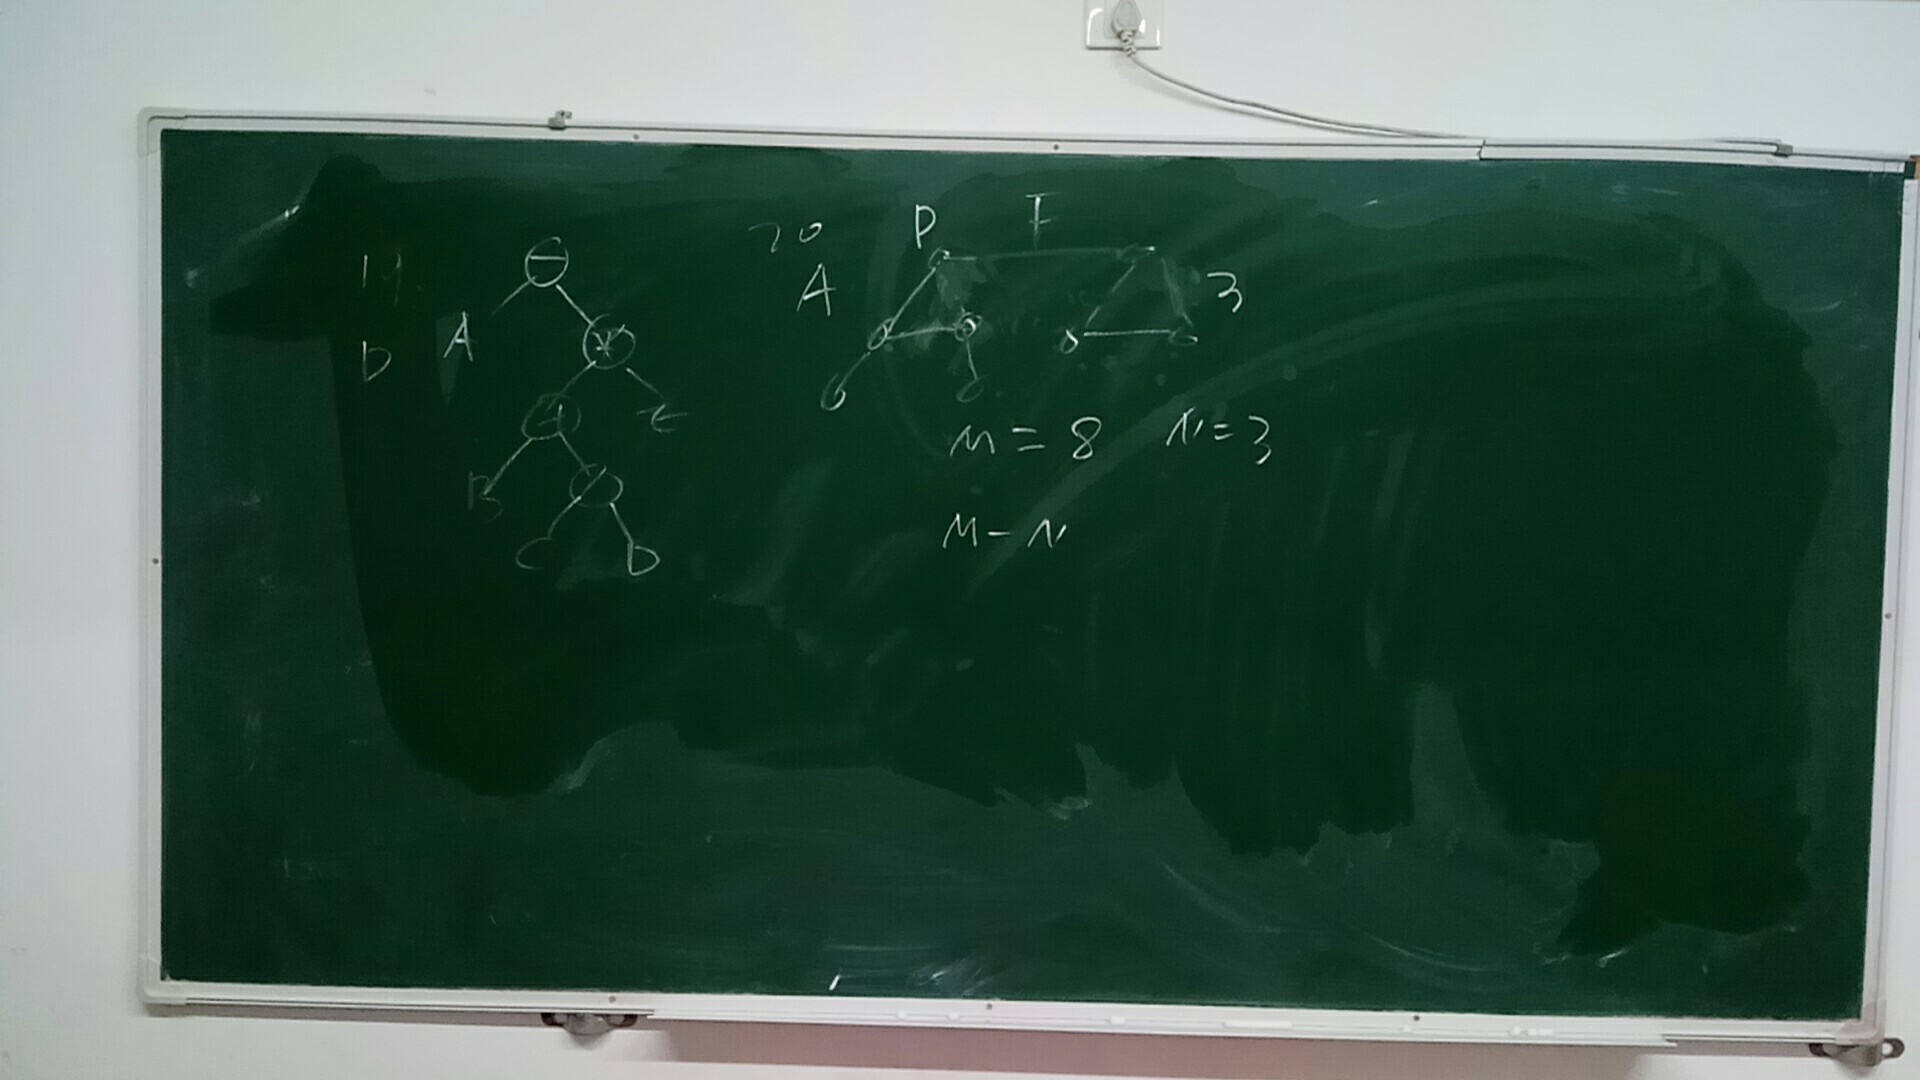 19.
D
−
A
*
+
E
B
/
C
D
20
A
P
F
3
M = 8 N = 3
M - N